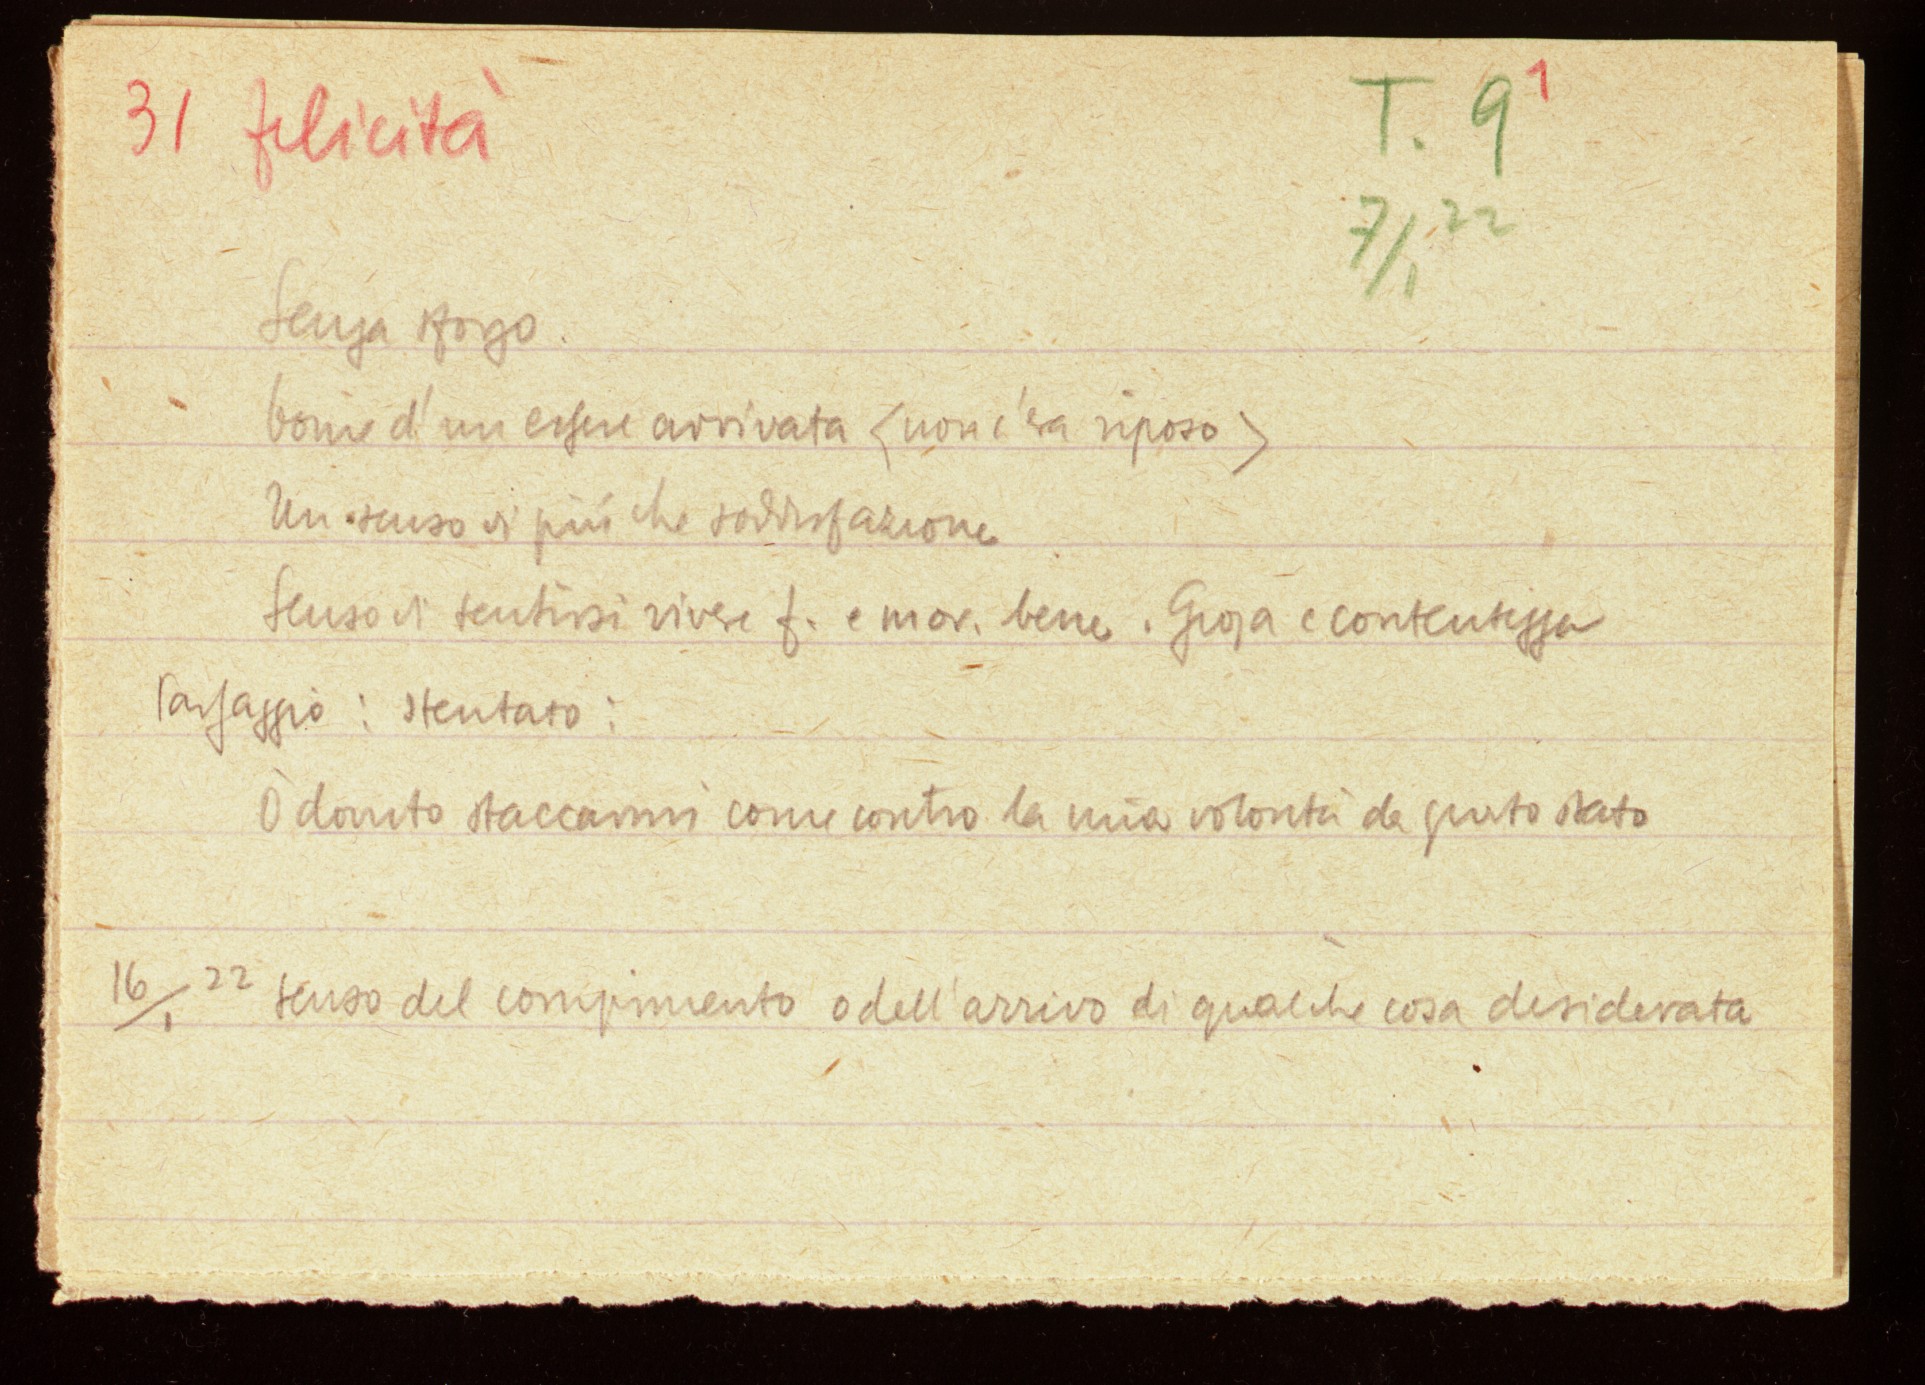 31 felicità T. 9¹
7/1 22
Senza sforzo.
Come d'un essere arrivata <non c'era riposo>
Un senso di più che soddisfazione
Senso di sentirsi vivere f. e mor. bene. Gioja e contentezza
Passaggio: stentato:
Ò dovuto staccarmi come contro la mia volontà da questo stato
16/1 22 senso del compimento o dell'arrivo di qualche cosa desiderata